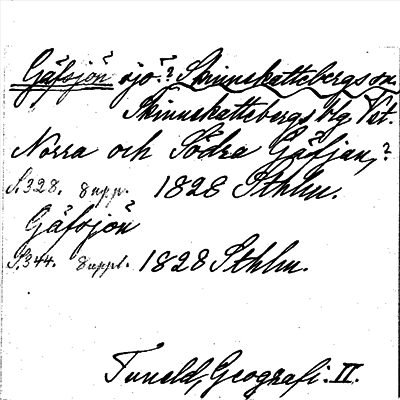 Gäfsjön sjö? Skinnskattebergs sn.
Skinnskattebergs blg Vst.
Norra och Södra Gäfsjan,?
S. 328. 8 upp. 1828 Sthlm.
Gäfsjön
S. 344. 8 uppl. 1828 Sthlm.
Tuneld, Geografi. II.